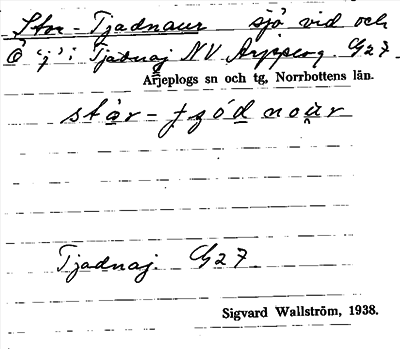 Stor-Tjadnaur sjö vid och
Ö 'j' i Tjadnaj NV Arjeplog. G27.
Arjeplogs sn och tg, Norrbottens län.
Tjadnaj. G27
Sigvard Wallström, 1938.